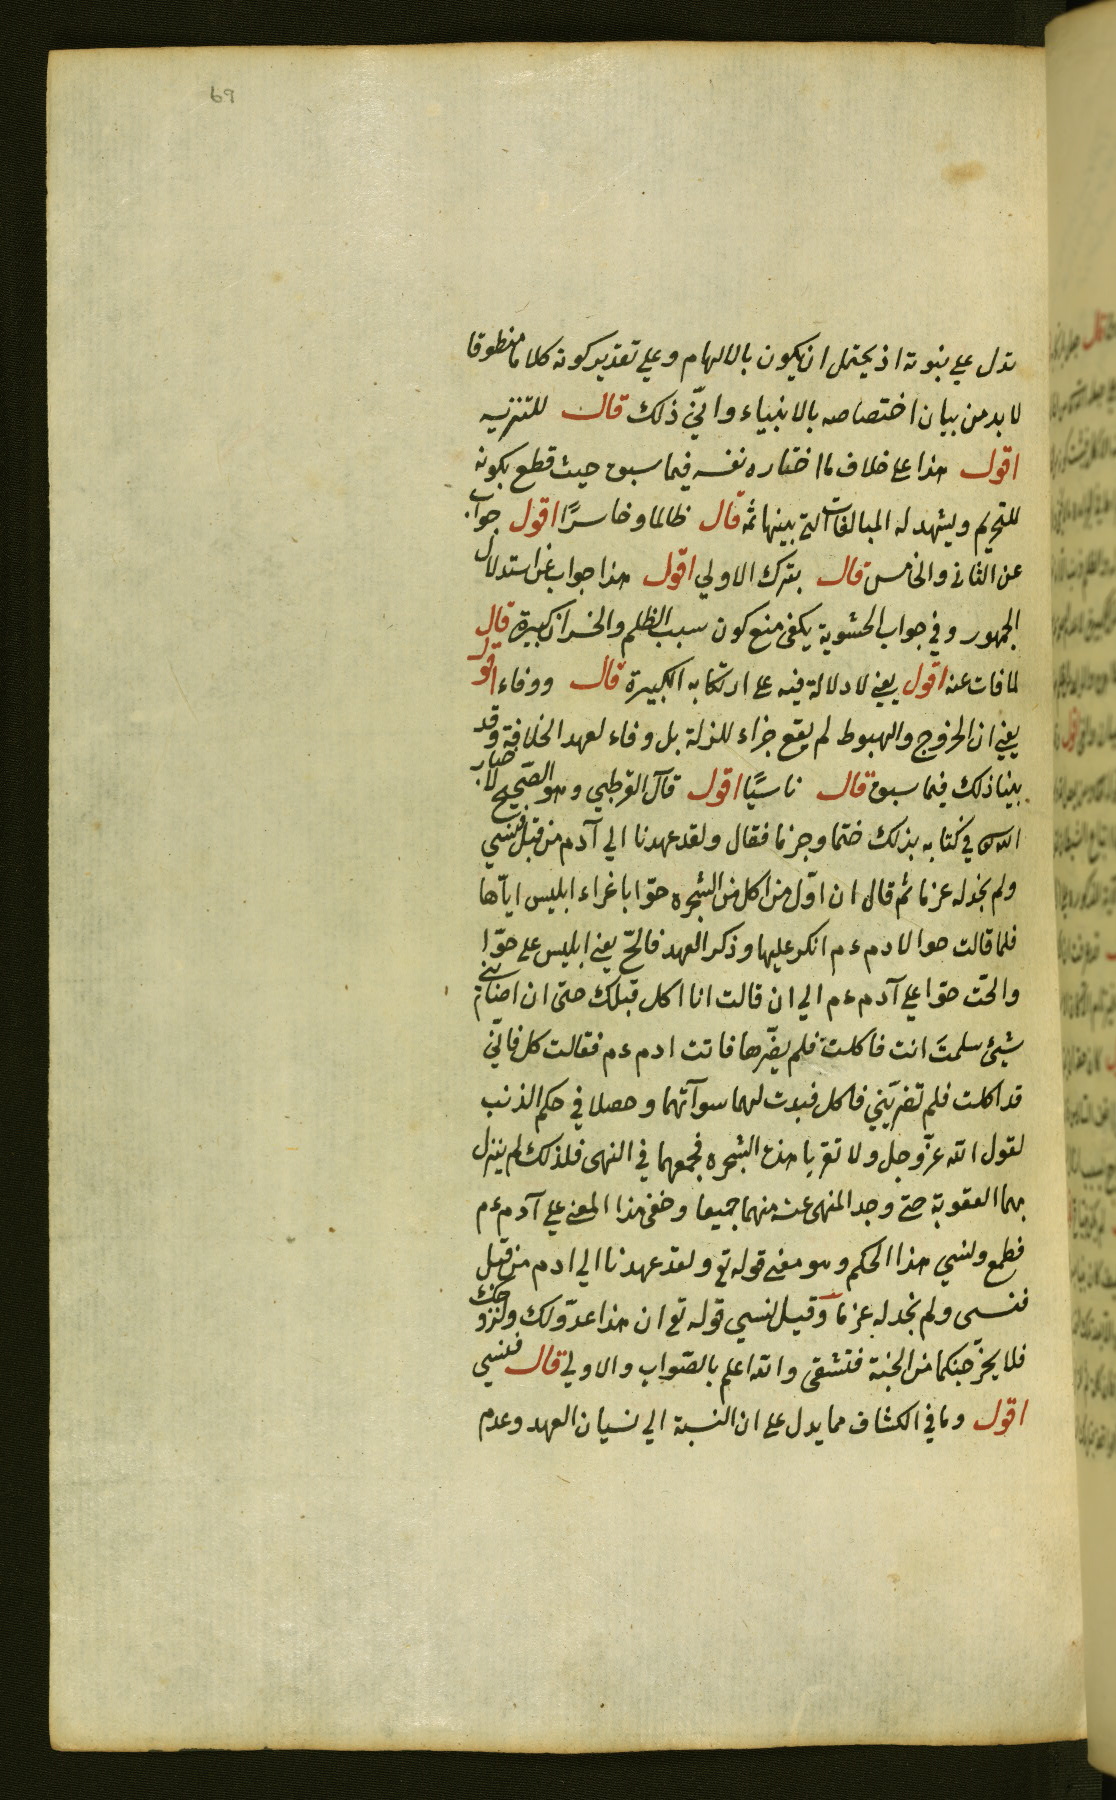 69
تدل على نبوته اذ يحتمل ان يكون بالالهام وعلى تقدير كونه كلاما منطوقا
لا بد من بيان اختصاصه بالانبياء وانّي ذلك قال للتنزيه
اقول هذا على خلاف ما اختاره نفسه فيما سبق حيث قطع بكونه
للتحريم ويشهد له المبالغات التي بينها ثمه قال ظالما وخاسرًا اقول جواب
عن الثاني والخامس قال بترك الاولي اقول هذا جواب عن استدلال
الجمهور وفي جواب الحشوية يكفي منع كون سبب الظلم والخسران كبيرة قال
لما فات عنه اقول يعني لا دلالة فيه على ارتكابه الكبيرة قال ووفاء اقول
يعني ان الخروج والهبوط لم يقع جزاء للزلة بل وفاء لعهد الخلافة وقد
بينا ذلك فيما سبق قال ناسيًا اقول قال القرطبي وهو الصّحيح لاخبار
الله في كتابه بذلك ختما وجزما فقال ولقد عهدنا الي آدم من قبل فنسي
ولم نجد له عزما ثم قال ان اوّل من اكل من الشجره حوّا باغراء ابليس ايّاها
فلما قالت حوا لادم ءم انكر عليها وذكر العهد فالحّ يعني ابليس على حوّا
والحّت حوّا علي آدم ءم الي ان قالت انا اكل قبلك حتى ان اصابني
شيئ سلمتَ انت فاكلت فلم يضّرها فاتت ادم ءم فقالت كل فانّي
قد اكلت فلم تضرّني فاكل فبدت لهما سوآتهما وحصلا في حكم الذنب
لقول الله عزّ وجل ولا تقربا هذه الشجره فجمعهما في النهى فلذلك لم ينزل
بهما العقوبة حتي وجد المنهي عنه منهما جميعا وخفي هذا المعني علي آدم ءم
فطمع ونسي هذا الحكم وهو معني قوله تع ولقد عهدنا الي ادم من قبل
فنسى ولم نجد له عزما وقيل نسي قوله تع ان هذا عدّو لك ولزوجك
فلا يخرّجنكما من الجنة فتشقى والله اعلم بالصّواب والاولي قال فنسي
اقول وما في الكشاف مما يدل على ان النسبة الي نسيان العهد وعدم